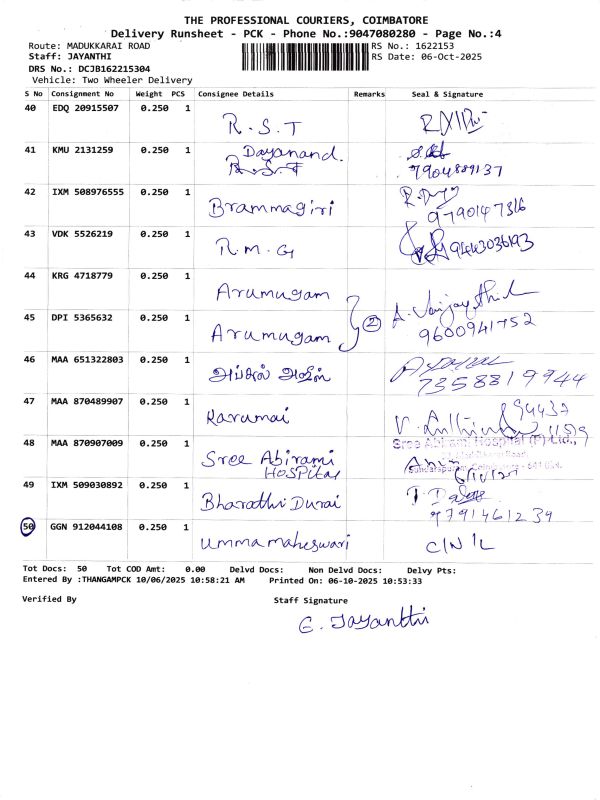 THE PROFESSIONAL COURIERS, COIMBATORE
Delivery Runsheet - PCK - Phone No.:9047080280 - Page No.:4
Route: MADUKKARAI ROAD RS No.: 1622153
Staff: JAYANTHI RS Date: 06-Oct-2025
DRS No.: DCJB162215304
Vehicle: Two Wheeler Delivery
S No Consignment No Weight PCS Consignee Details Remarks Seal & Signature
40 EDQ 20915507 0.250 1 R.S.T
41 KMU 2131259 0.250 1 Dayanand.
R.S.T 7904889137
42 IXM 508976555 0.250 1 Brammagiri 9790147316
43 VDK 5526219 0.250 1 R.M.G 9443036193
44 KRG 4718779 0.250 1 Arumugam
45 DPI 5365632 0.250 1 Arumugam 2 9600941752
46 MAA 651322803 0.250 1 7358819944
47 MAA 870489907 0.250 1 Karumai
48 MAA 870907009 0.250 1 Sree Abirami Sree Abirami Hospital (P) Ltd.,
HOSPITAL
49 IXM 509030892 0.250 1 Bharathi Durai
9791461239
50 GGN 912044108 0.250 1 umma maheswari
Tot Docs: 50 Tot COD Amt: 0.00 Delvd Docs: Non Delvd Docs: Delvy Pts:
Entered By :THANGAMPCK 10/06/2025 10:58:21 AM Printed On: 06-10-2025 10:53:33
Verified By Staff Signature
E. Jayanthi